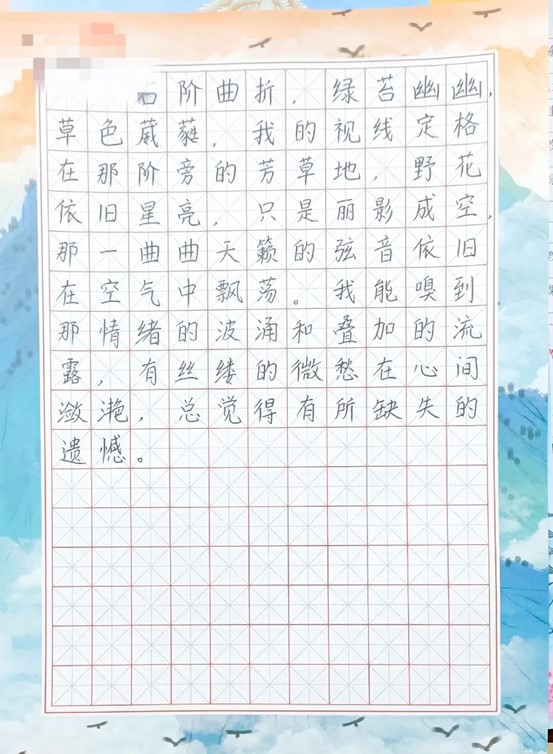 阶曲折，绿苔幽幽，
草色葳蕤，我的视线定格
在那阶旁的芳草地，野花
依旧星亮，只是丽影成空，
那一曲曲天籁的弦音依旧
在空气中飘荡。我能嗅到
那情绪的波涌和叠加的流
露，有丝缕的微愁在心间
潋滟，总觉得有所缺失的
遗憾。